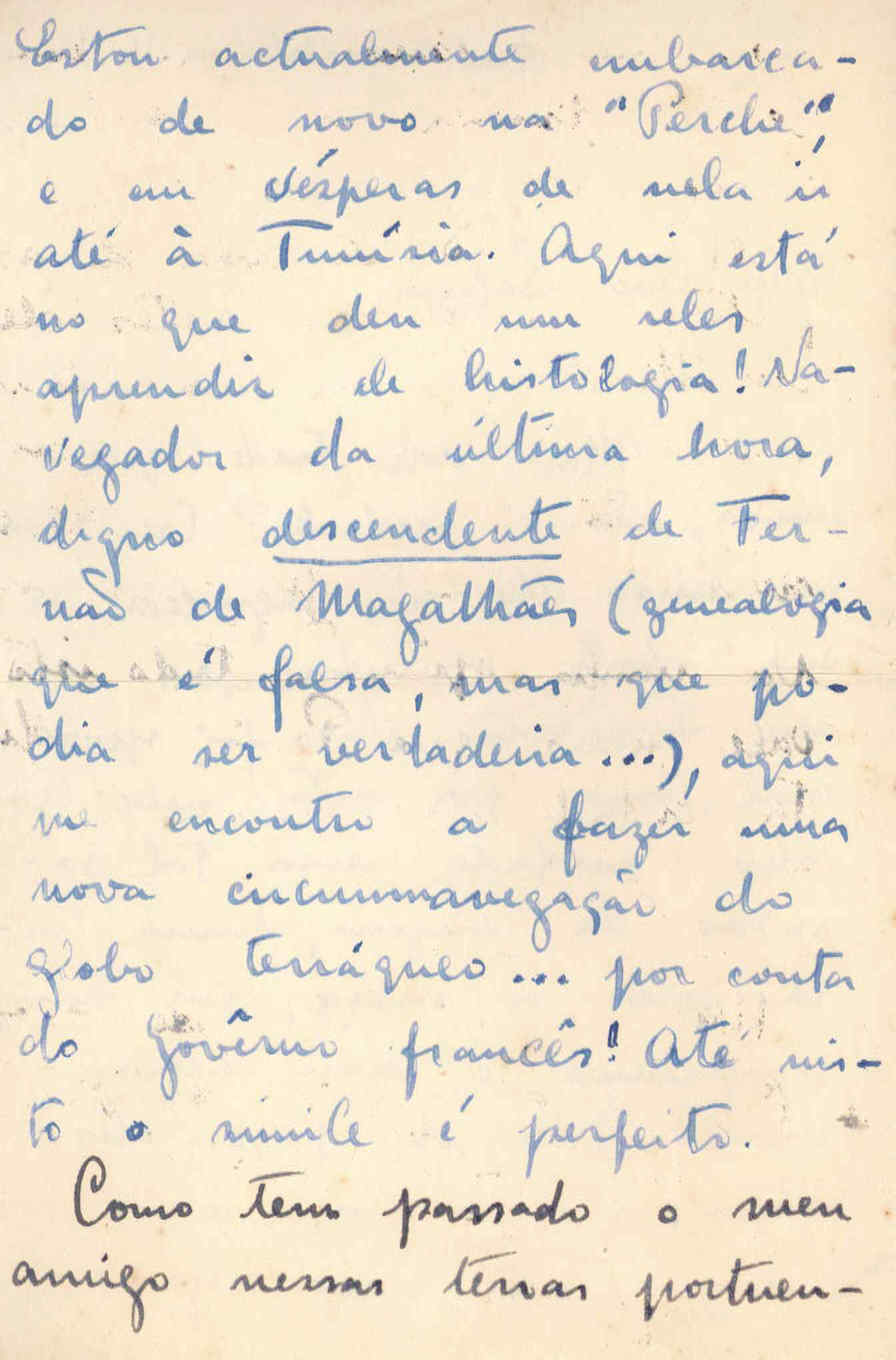 Estou actualmente embarca-
do de novo na "Perche",
e em vésperas de nela ir
até à Tunísia. Aqui está
no que deu um reles
aprendiz de histologia! Na-
vegador da última hora,
digno descendente de Fer-
não de Magalhães (genealogia
que é falsa, mas que po-
dia ser verdadeira...), aqui
me encontro a fazer uma
nova circumnavegação do
globo terráqueo... por conta
do Govêrno francês! Até nis-
to o simile é perfeito.
Como tem passado o meu
amigo nessas terras portuen-